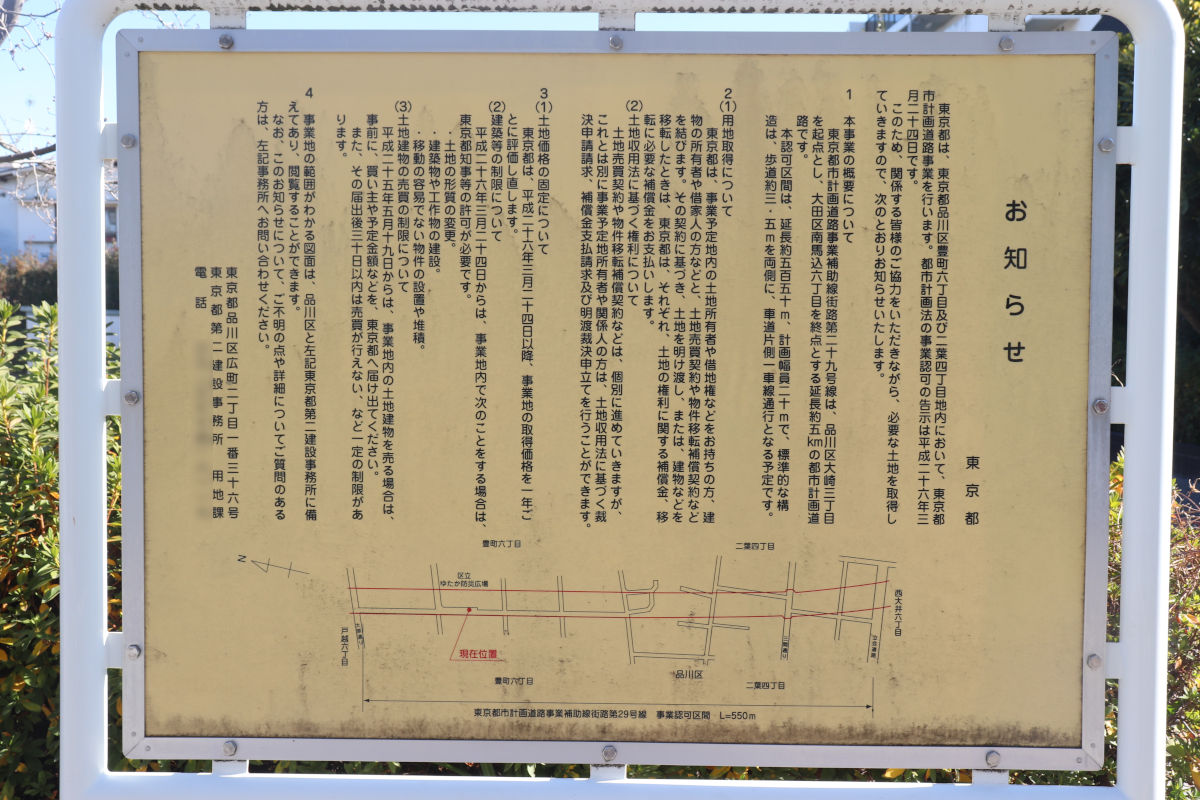 お知らせ
東京都
東京都は、東京都品川区豊町六丁目及び二葉四丁目地内において、東京都
市計画道路事業を行います。都市計画法の事業認可の告示は平成二十六年三
月二十四日です。
このため、関係する皆様のご協力をいただきながら、必要な土地を取得し
ていきますので、次のとおりお知らせいたします。
1 本事業の概要について
東京都市計画道路事業補助線街路第二十九号線は、品川区大崎三丁目
を起点とし、大田区南馬込六丁目を終点とする延長約五kmの都市計画道
路です。
本認可区間は、延長約五百五十m、計画幅員二十mで、標準的な構
造は、歩道約三・五mを両側に、車道片側一車線通行となる予定です。
2 (1)用地取得について
東京都は、事業予定地内の土地所有者や借地権などをお持ちの方、建
物の所有者や借家人の方などと、土地売買契約や物件移転補償契約など
を結びます。その契約に基づき、土地を明け渡し、または、建物などを
移転したときは、東京都は、それぞれ、土地の権利に関する補償金、移
転に必要な補償金をお支払いします。
(2)土地収用法に基づく権利について
土地売買契約や物件移転補償契約などは、個別に進めていきますが、
これとは別に事業予定地所有者や関係人の方は、土地収用法に基づく裁
決申請請求、補償金支払請求及び明渡裁決申立てを行うことができます。
3 (1)土地価格の固定について
東京都は、平成二十六年三月二十四日以降、事業地の取得価格を一年ご
とに評価し直します。
(2)建築等の制限について
平成二十六年三月二十四日からは、事業地内で次のことをする場合は、
東京都知事等の許可が必要です。
・土地の形質の変更。
・建築物や工作物の建設。
・移動の容易でない物件の設置や堆積。
(3)土地建物の売買の制限について
平成二十五年五月十九日からは、事業地内の土地建物を売る場合は、
事前に、買い主や予定金額などを、東京都へ届け出てください。
また、その届出後三十日以内は売買が行えない、など一定の制限があ
ります。
4 事業地の範囲がわかる図面は、品川区と左記東京都第二建設事務所に備
えてあり、閲覧することができます。
なお、このお知らせについて、ご不明の点や詳細についてご質問のある
方は、左記事務所へお問い合わせください。
東京都品川区広町二丁目一番三十六号
東京都第二建設事務所 用地課
電話
豊町六丁目
二葉四丁目
N
区立
ゆたか防災広場
西大井六丁目
戸越六丁目
現在位置
三間通り
品川区
豊町六丁目
二葉四丁目
東京都市計画道路事業補助線街路第29号線 事業認可区間 L=550m